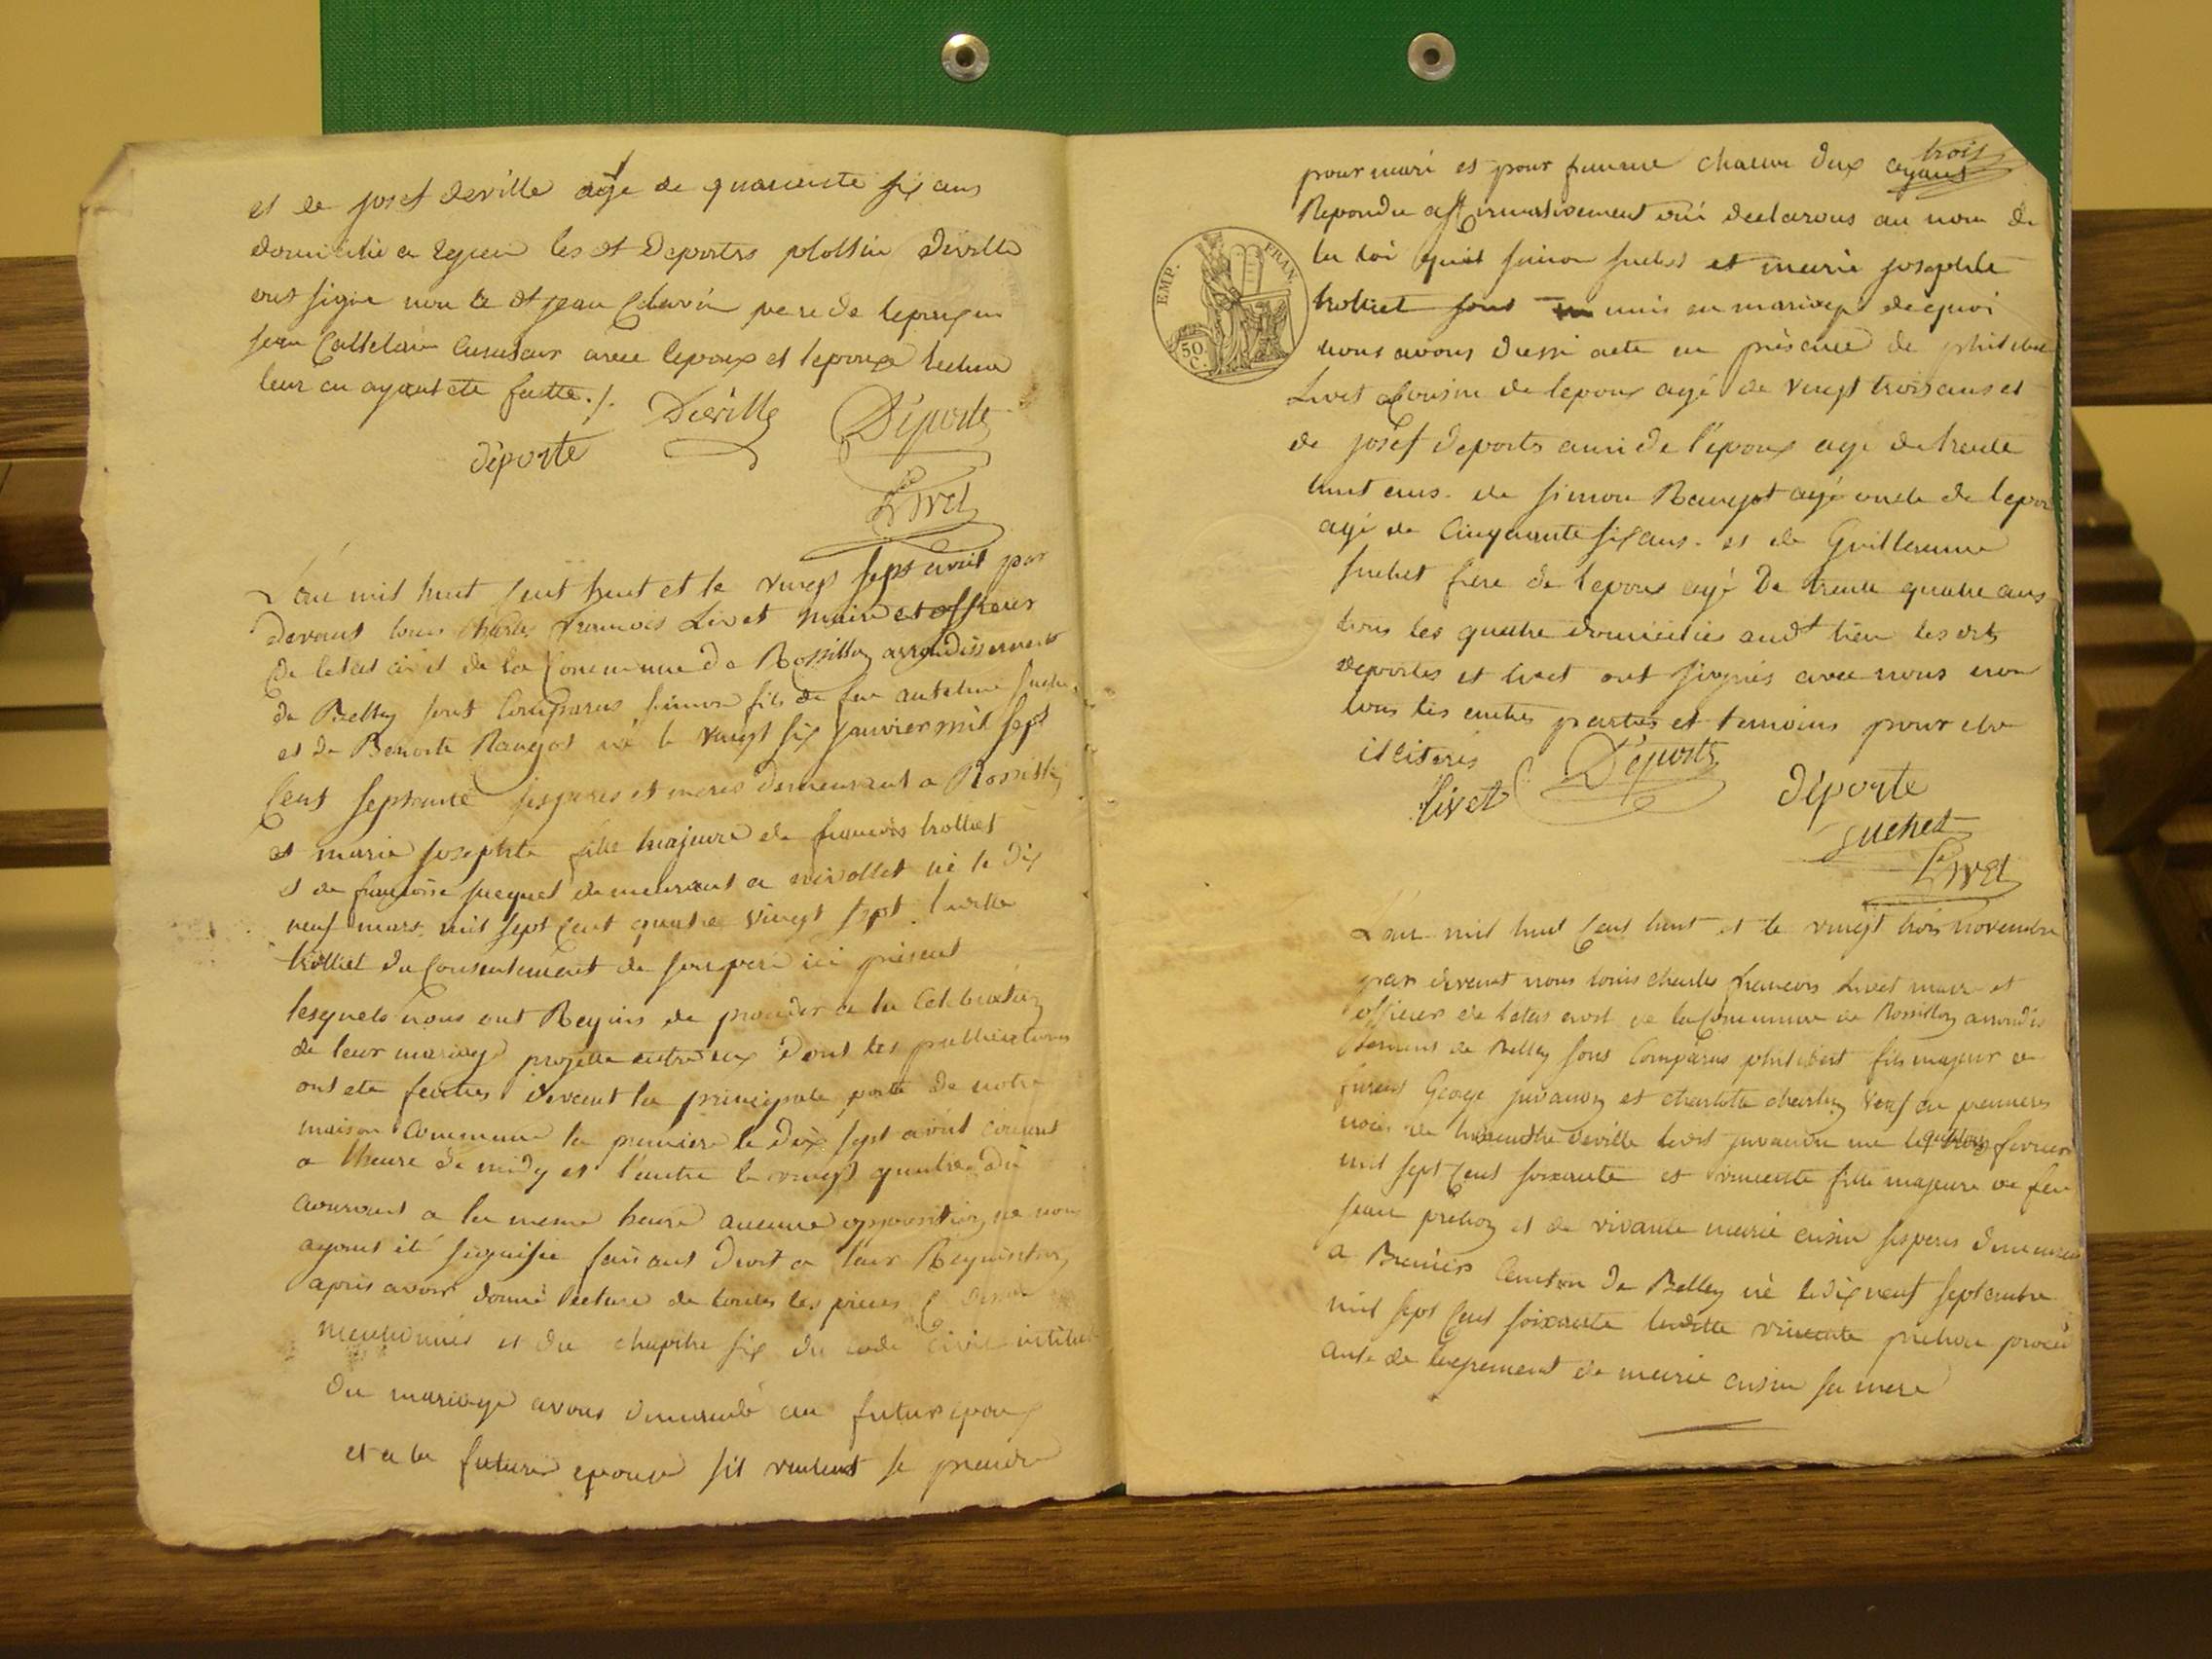 et de josef deville agé de quarente six ans
domicilié a les dt Deportes plottin Déville
ont signé non le dt jean pere de lepouse
jean avec lepoux et lepouse lecture
leur en ayant été faitte ./.
Déville
Déporte
déporte
Livet
L'an mil huit cent huit et le vingt sept avril par
devant louis charles francois Livet maire et officier
De letat civil de la Commune de Rossillon arrondissement
de Belley sont Comparus simon fils de feu antelme suchet
et de Benoite Raugot né le vingt six janvier mil sept
Cent septante ses peres et meres demeurant a Rossillon
et marie josephte fille majeure de francois trolliet
et de francoise jacquet demeurant a né le dix
neuf mars mil sept cent quatre vingt sept laditte
trolliet du Consentement de son pere ici présent
lesquels nous ont Requis de proceder a la Célébration
de leur mariage projetté entre eux Dont les publications
ont été faittes devant la principale porte de notre
maison Commune la premiere le dix sept avril courant
a lheure de midy et l'autre le vingt quatre du
courant a la meme heure aucune opposition ne nous
ayant été signifiée faisant droit a leur Requisition
apres avoir donné lecture de toutes les pieces
mentionnés et du chapitre six du code civil intitulé
du mariage avons demandé au futur epoux
et a la future epouse sil veulent se prendre
EMP. FRAN.
50 C.
pour mari et pour femme chacun deux ayant
trois
Repondu affirmativement oui declarons au nom de
la loi que simon suchet et marie josephte
trolliet sont unis en mariage de quoi
nous avons dressé acte en présence de philibert
Livet Cousin de lepoux agé de vingt trois ans et
de josef deports ami de l'époux agé de trente
huit ans. de simon Raugot agé oncle de lepoux
agé de Cinquante six ans. et de Guillaume
suchet frere de lepoux agé de trente quatre ans
tous les quatre domiciliés audt lieu les dts
deportes et livet ont signés avec nous non
tous les autres parties et temoins pour etre
iliterés
livet
Déporte
déporte
suchet
Livet
L'an mil huit cent huit et le vingt trois novembre
par devant nous louis charles francois Livet maire et
officier de letat civil de la Commune de Rossillon arrondis
sement de Belley sont Comparus philibert fils majeur a
furent George juvanon et charlotte charlin Veuf en premieres
noces de deville ledt juvanon né le fevrier
mil sept cent soixante et vincente fille majeure de feu
jean prehon et de vivante marie cusin ses peres demeurant
a Breniers Canton de Belley né le dix neuf septembre
mil sept cent soixante laditte vincente prehon procéd
ante de lagrement de marie cusin sa mere